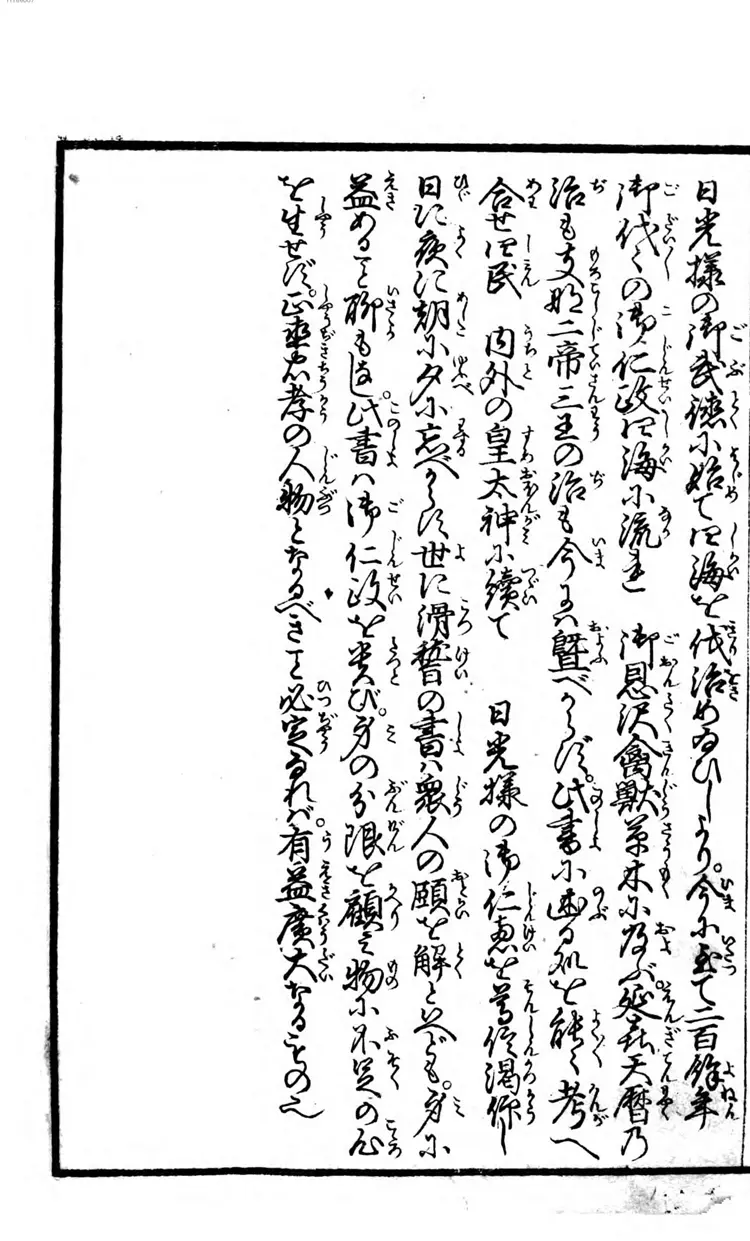 日光様の御武徳に始て四海を伐治めゐひしより。今に至て二百餘年
御代〻の御仁政四海に流れ　御恩沢禽獣草木に及ぶ。延喜天暦乃
治も支那二帝三王の治も今には曁べからず。此書に述る処を能〻考へ
合せ四民　内外の皇太神に續て　日光様の御仁恵を尊信渇仰し
日に夜に朝に夕に忘べからず世に滑稽の書は衆人の頤を解といへども。身に
益めること聊もなし。此書は御仁政を貴び。身の分限を顧み物に不足の心
を生せず。正直忠孝の人物となるべきこと必定なれば。有益廣大なることの也